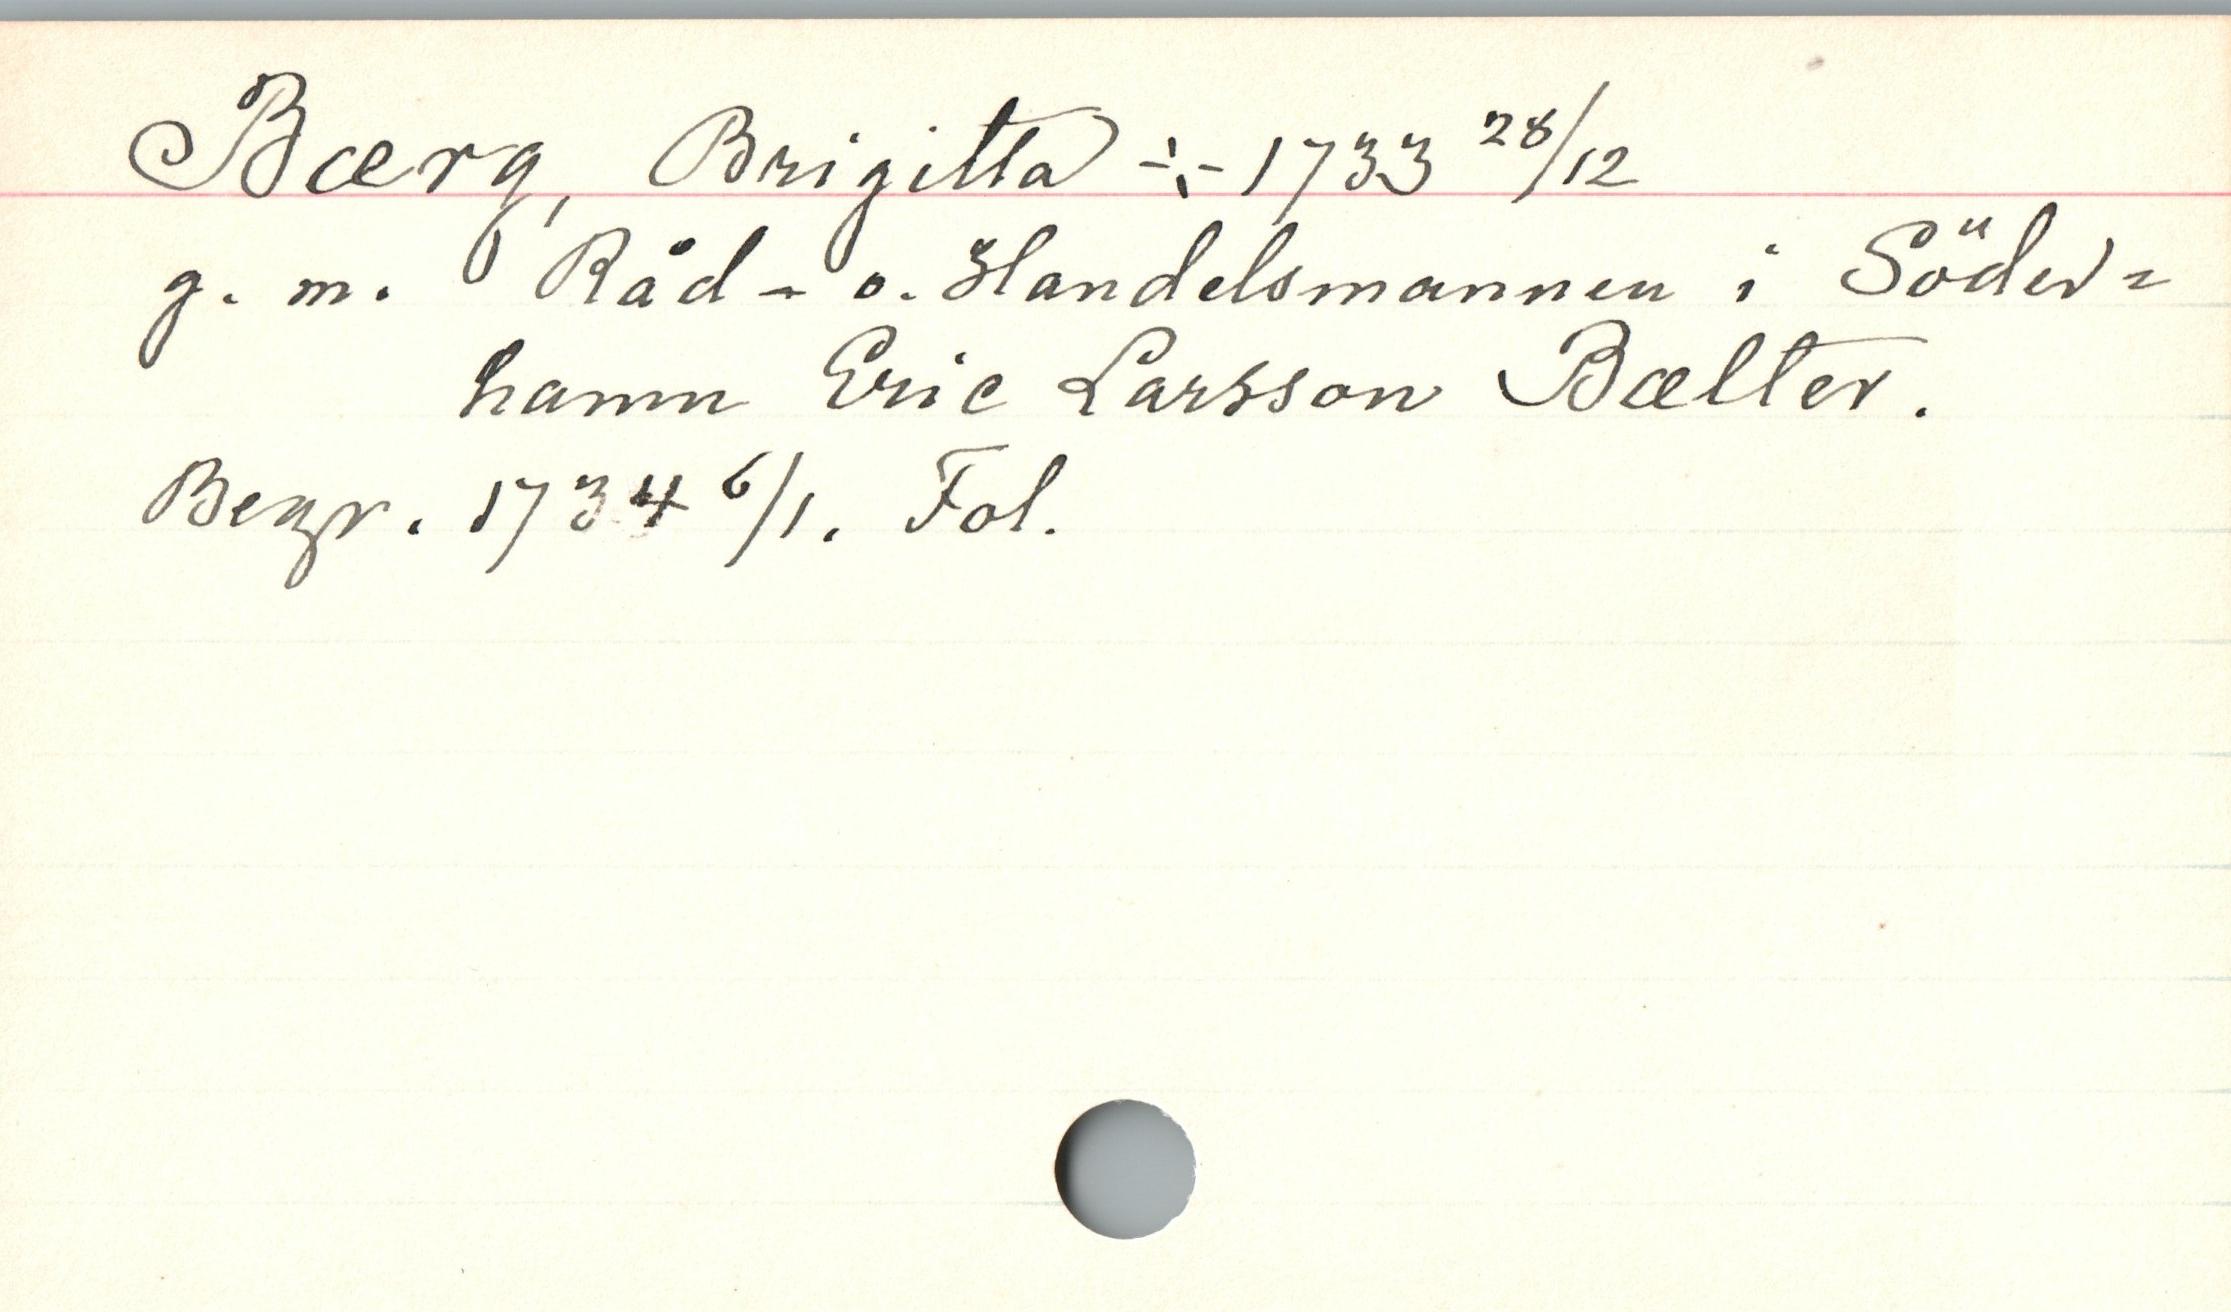 Bærg, Brigitta ÷ 1733 28/12
g. m. Råd- o. Handelsmannen i Söder=
hamn Eric Larsson Bælter.
Begr. 1734 6/1. Fol.